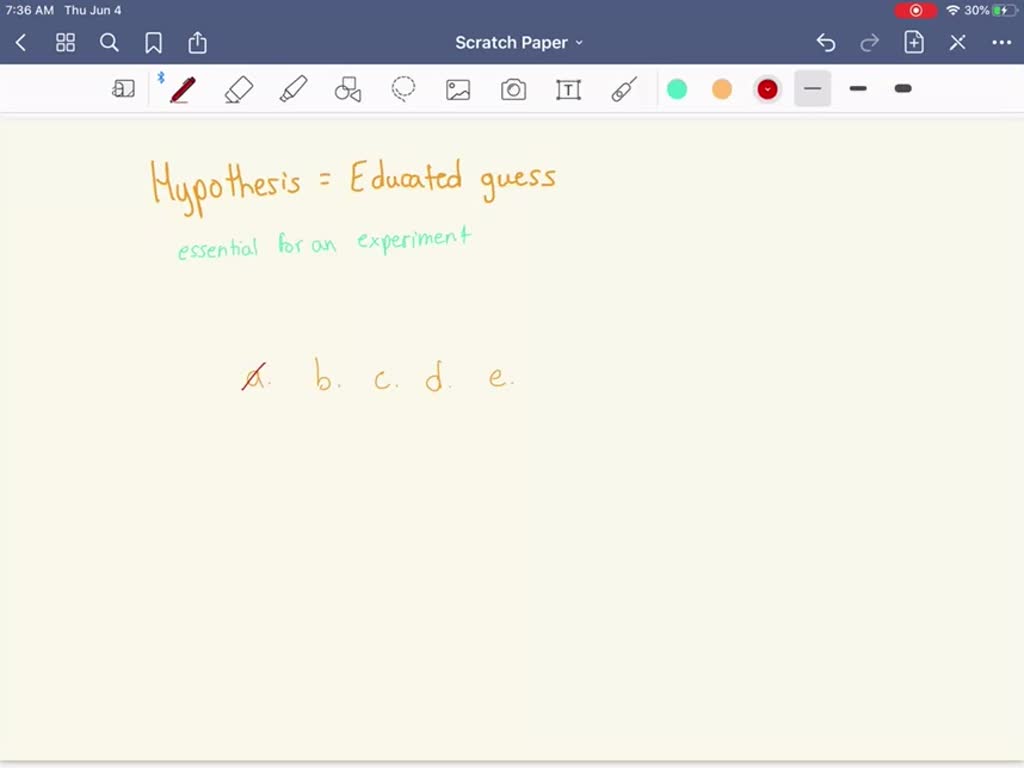 7:36 AM Thu Jun 4
30%
Scratch Paper
Hypothesis = Educated guess
essential for an experiment
a. b. c. d. e.